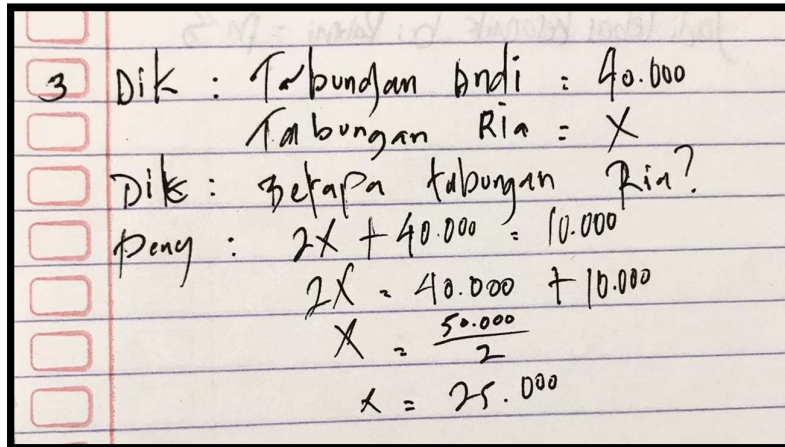 3 Dik : Tabungan Andi = 40.000
Tabungan Ria = X
Dik : Berapa tabungan Ria?
Peny : 2X + 40.000 = 10.000
2X = 40.000 + 10.000
X = 50.000 / 2
x = 25.000